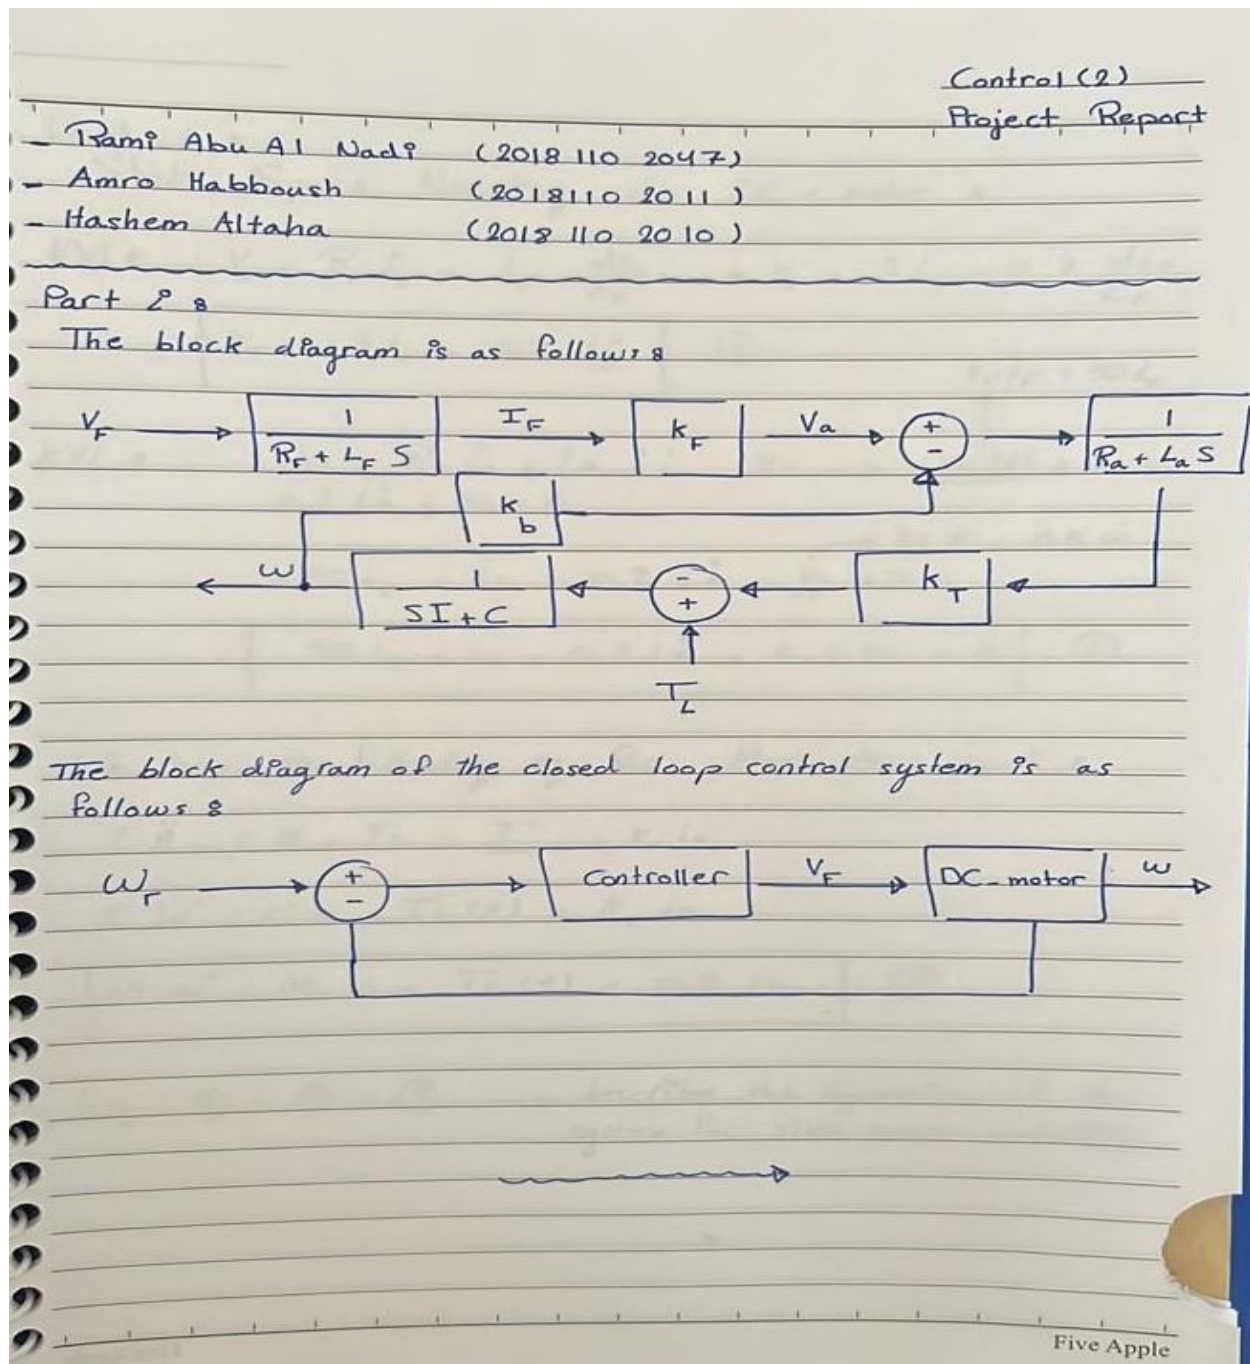 Control (2)
Project Report
- Rami Abu Al Nadi (2018 110 2047)
- Amro Habboush (2018110 2011)
- Hashem Altaha (2018 110 2010)
Part i :
The block diagram is as follow:
V_F
1
R_F + L_F S
I_F
k_F
Va
+
-
1
R_a + L_a S
k_b
ω
1
SI + C
-
+
k_T
T_L
The block diagram of the closed loop control system is as
follows :
ω_r
+
-
Controller
V_F
DC-motor
ω
Five Apple